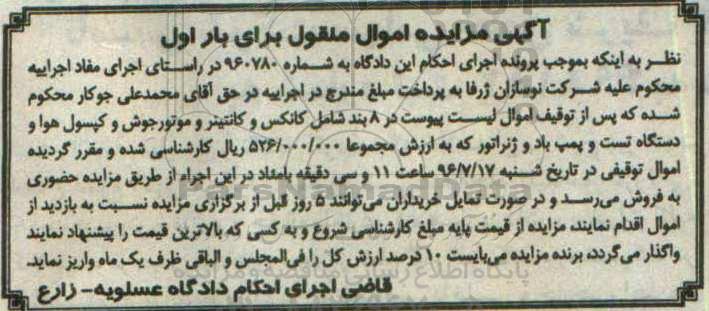 آگهی مزایده اموال منقول برای بار اول
نظر به اینکه بموجب پرونده اجرای احکام این دادگاه به شماره ۹۶۰۷۸۰ در راستای اجرای مفاد اجراییه
محکوم علیه شرکت نوسازان ژرفا به پرداخت مبلغ مندرج در اجراییه در حق آقای محمدعلی جوکار محکوم
شده که پس از توقیف اموال لیست پیوست در ۸ بند شامل کانکس و کانتینر و موتورجوش و کپسول هوا و
دستگاه تست و پمپ باد و ژنراتور که به ارزش مجموعا ۵۲۶/۰۰۰/۰۰۰ ریال کارشناسی شده و مقرر گردیده
اموال توقیفی در تاریخ شنبه ۹۶/۷/۱۷ ساعت ۱۱ و سی دقیقه بامداد در این اجراء از طریق مزایده حضوری
به فروش می‌رسد و در صورت تمایل خریداران می‌توانند ۵ روز قبل از برگزاری مزایده نسبت به بازدید از
اموال اقدام نمایند، مزایده از قیمت پایه مبلغ کارشناسی شروع و به کسی که بالاترین قیمت را پیشنهاد نمایند
واگذار می‌گردد، برنده مزایده می‌بایست ۱۰ درصد ارزش کل را فی‌المجلس و الباقی ظرف یک ماه واریز نماید.
قاضی اجرای احکام دادگاه عسلویه- زارع
ParsNamadData
پایگاه اطلاع رسانی مناقصه و مزایده